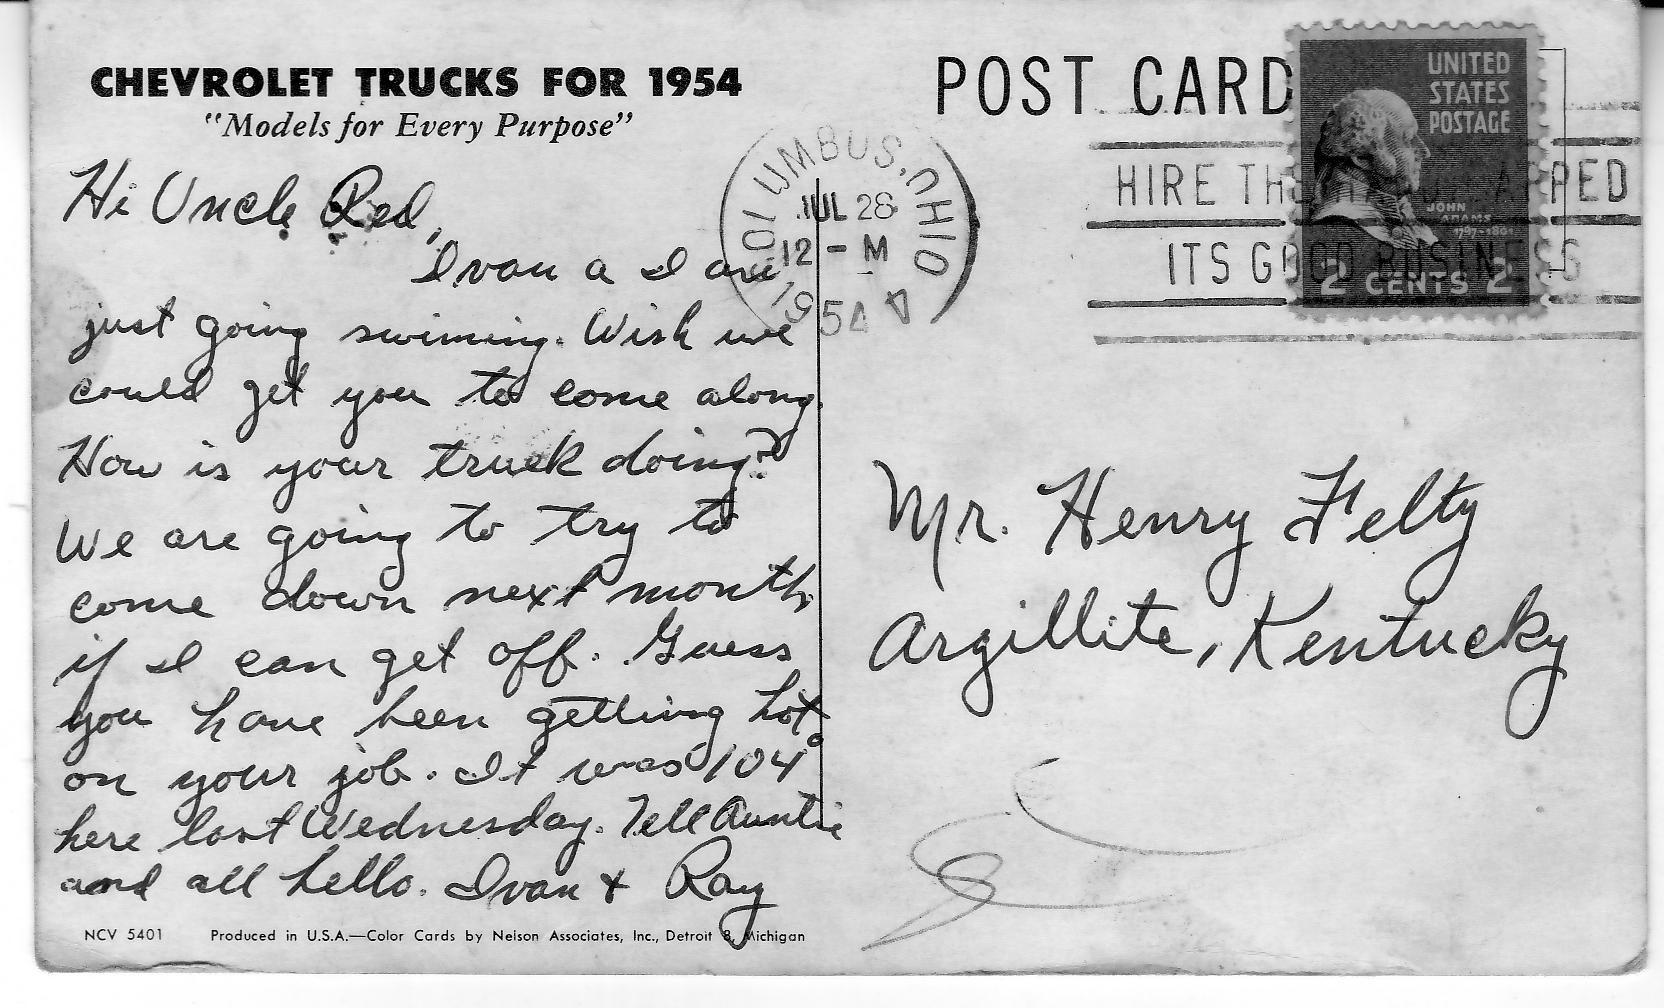 CHEVROLET TRUCKS FOR 1954
"Models for Every Purpose"
Hi Uncle Red,
Ivan a I are
just going swimming. Wish we
could get you to come along.
How is your truck doing?
We are going to try to
come down next month,
if I can get off. Guess
you have been getting hot
on your job. It was 104°
here last Wednesday. Tell Auntie
and all hello. Ivan + Ray
NCV 5401 Produced in U.S.A.—Color Cards by Neison Associates, Inc., Detroit 8, Michigan
POST CARD
COLUMBUS, OHIO
JUL 28
12 - M
1954
HIRE THE HANDICAPPED
ITS GOOD BUSINESS
UNITED
STATES
POSTAGE
JOHN
ADAMS
1797-1801
2 CENTS 2
Mr. Henry Felty
Argillite, Kentucky